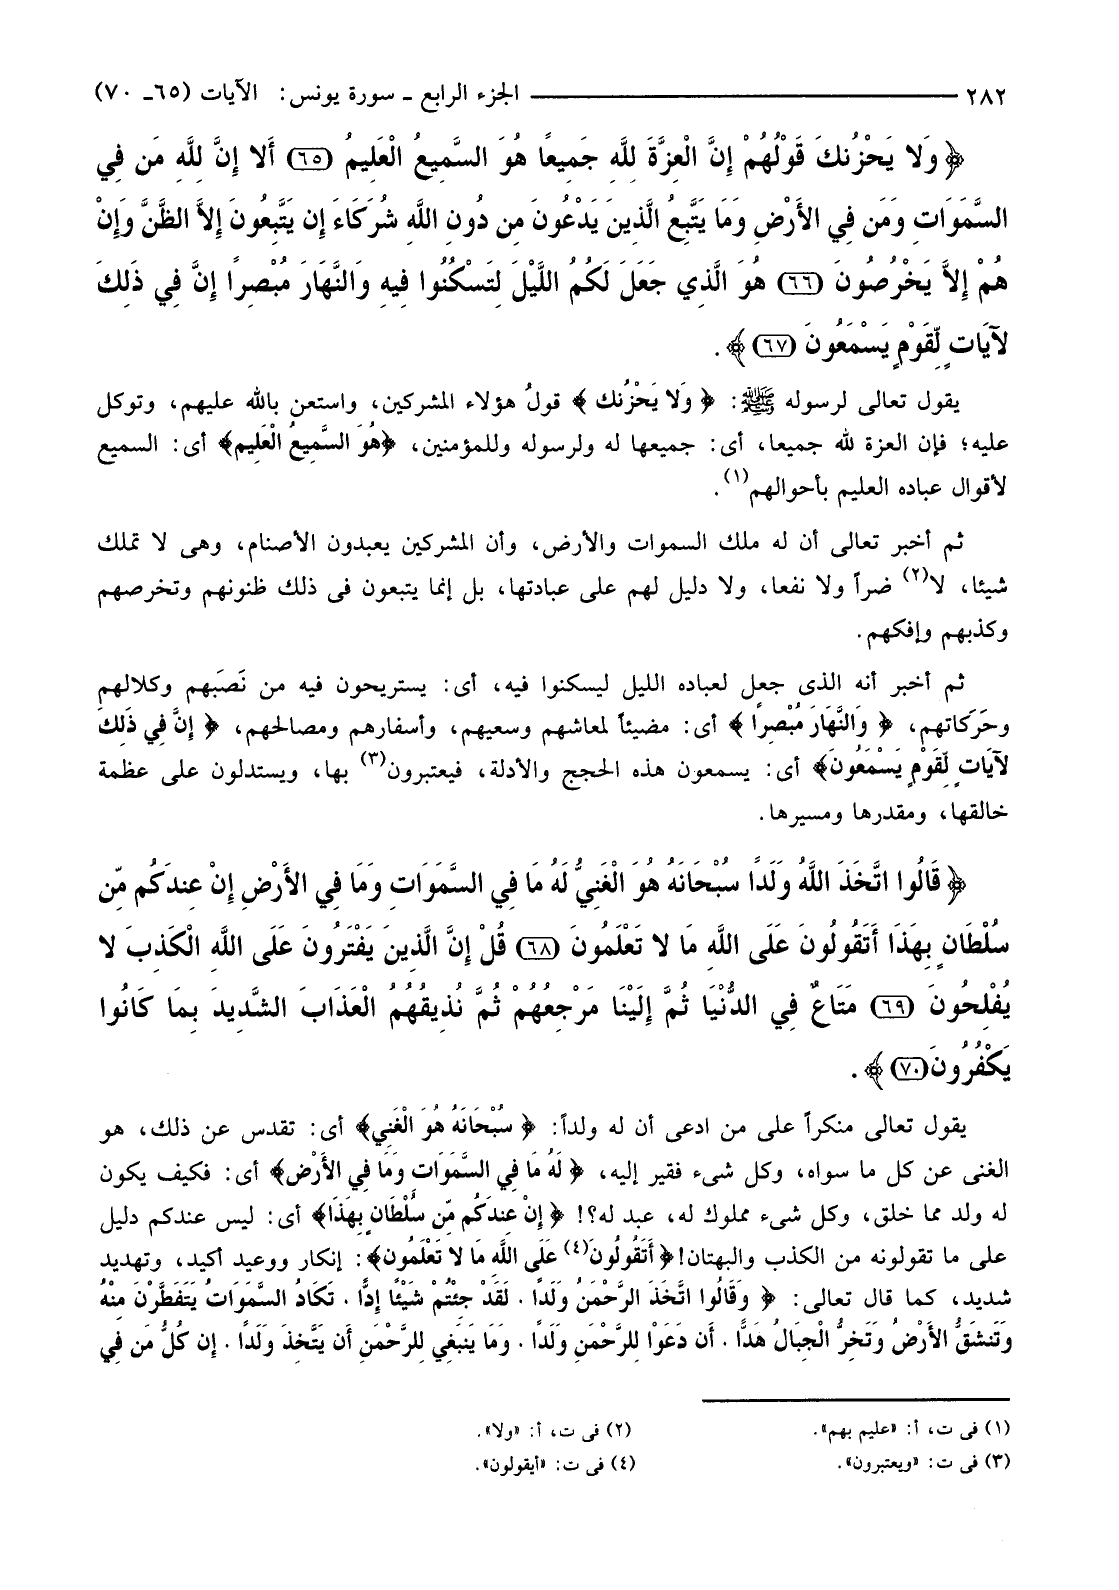 ٢٨٢ ـــــــ الجزء الرابع ـ سورة يونس: الآيات (٦٥ـ ٧٠)
﴿ وَلا يَحْزُنكَ قَوْلُهُمْ إِنَّ الْعِزَّةَ لِلَّهِ جَمِيعاً هُوَ السَّمِيعُ الْعَلِيمُ (٦٥) أَلا إِنَّ لِلَّهِ مَن فِي
السَّمَوَاتِ وَمَن فِي الأَرْضِ وَمَا يَتَّبِعُ الَّذِينَ يَدْعُونَ مِن دُونِ اللَّهِ شُرَكَاءَ إِن يَتَّبِعُونَ إِلاَّ الظَّنَّ وَإِنْ
هُمْ إِلاَّ يَخْرُصُونَ (٦٦) هُوَ الَّذِي جَعَلَ لَكُمُ اللَّيْلَ لِتَسْكُنُوا فِيهِ وَالنَّهَارَ مُبْصِرًا إِنَّ فِي ذَلِكَ
لآيَاتٍ لِّقَوْمٍ يَسْمَعُونَ (٦٧)﴾ .
يقول تعالى لرسوله ﷺ: ﴿ وَلا يَحْزُنك ﴾ قولُ هؤلاء المشركين، واستعن بالله عليهم، وتوكل
عليه؛ فإن العزة لله جميعا، أى: جميعها له ولرسوله وللمؤمنين، ﴿هُوَ السَّمِيعُ الْعَلِيم﴾ أى: السميع
لأقوال عباده العليم بأحوالهم(١).
ثم أخبر تعالى أن له ملك السموات والأرض، وأن المشركين يعبدون الأصنام، وهى لا تملك
شيئا، لا(٢) ضراً ولا نفعا، ولا دليل لهم على عبادتها، بل إنما يتبعون فى ذلك ظنونهم وتخرصهم
وكذبهم وإفكهم.
ثم أخبر أنه الذى جعل لعباده الليل ليسكنوا فيه، أى: يستريحون فيه من نَصَبهم وكلالهم
وحَرَكاتهم، ﴿ وَالنَّهَارَ مُبْصِرًا ﴾ أى: مضيئاً لمعاشهم وسعيهم، وأسفارهم ومصالحهم، ﴿ إِنَّ فِي ذَلِكَ
لآيَاتٍ لِّقَوْمٍ يَسْمَعُونَ﴾ أى: يسمعون هذه الحجج والأدلة، فيعتبرون(٣) بها، ويستدلون على عظمة
خالقها، ومقدرها ومسيرها.
﴿ قَالُوا اتَّخَذَ اللَّهُ وَلَداً سُبْحَانَهُ هُوَ الْغَنِيُّ لَهُ مَا فِي السَّمَوَاتِ وَمَا فِي الأَرْضِ إِنْ عِندَكُم مِّن
سُلْطَانٍ بِهَذَا أَتَقُولُونَ عَلَى اللَّهِ مَا لا تَعْلَمُونَ (٦٨) قُلْ إِنَّ الَّذِينَ يَفْتَرُونَ عَلَى اللَّهِ الْكَذِبَ لا
يُفْلِحُونَ (٦٩) مَتَاعٌ فِي الدُّنْيَا ثُمَّ إِلَيْنَا مَرْجِعُهُمْ ثُمَّ نُذِيقُهُمُ الْعَذَابَ الشَّدِيدَ بِمَا كَانُوا
يَكْفُرُونَ (٧٠)﴾ .
يقول تعالى منكراً على من ادعى أن له ولداً: ﴿ سُبْحَانَهُ هُوَ الْغَنِي﴾ أى: تقدس عن ذلك، هو
الغنى عن كل ما سواه، وكل شىء فقير إليه، ﴿ لَهُ مَا فِي السَّمَوَاتِ وَمَا فِي الأَرْض﴾ أى: فكيف يكون
له ولد مما خلق، وكل شىء مملوك له، عبد له؟! ﴿ إِنْ عِندَكُم مِّن سُلْطَانٍ بِهَذَا﴾ أى: ليس عندكم دليل
على ما تقولونه من الكذب والبهتان!﴿ أَتَقُولُونَ(٤) عَلَى اللَّهِ مَا لا تَعْلَمُون﴾: إنكار ووعيد أكيد، وتهديد
شديد، كما قال تعالى: ﴿ وَقَالُوا اتَّخَذَ الرَّحْمَنُ وَلَداً . لَقَدْ جِئْتُمْ شَيْئًا إِدًّا . تَكَادُ السَّمَوَاتُ يَتَفَطَّرْنَ مِنْهُ
وَتَنشَقُّ الأَرْضُ وَتَخِرُّ الْجِبَالُ هَدًّا . أَن دَعَوْا لِلرَّحْمَنِ وَلَدًا . وَمَا يَنبَغِي لِلرَّحْمَنِ أَن يَتَّخِذَ وَلَدًا . إِن كُلُّ مَن فِي
(١) فى ت، أ: «عليم بهم». (٢) فى ت، أ: «ولا».
(٣) فى ت: «ويعتبرون». (٤) فى ت: «أيقولون».